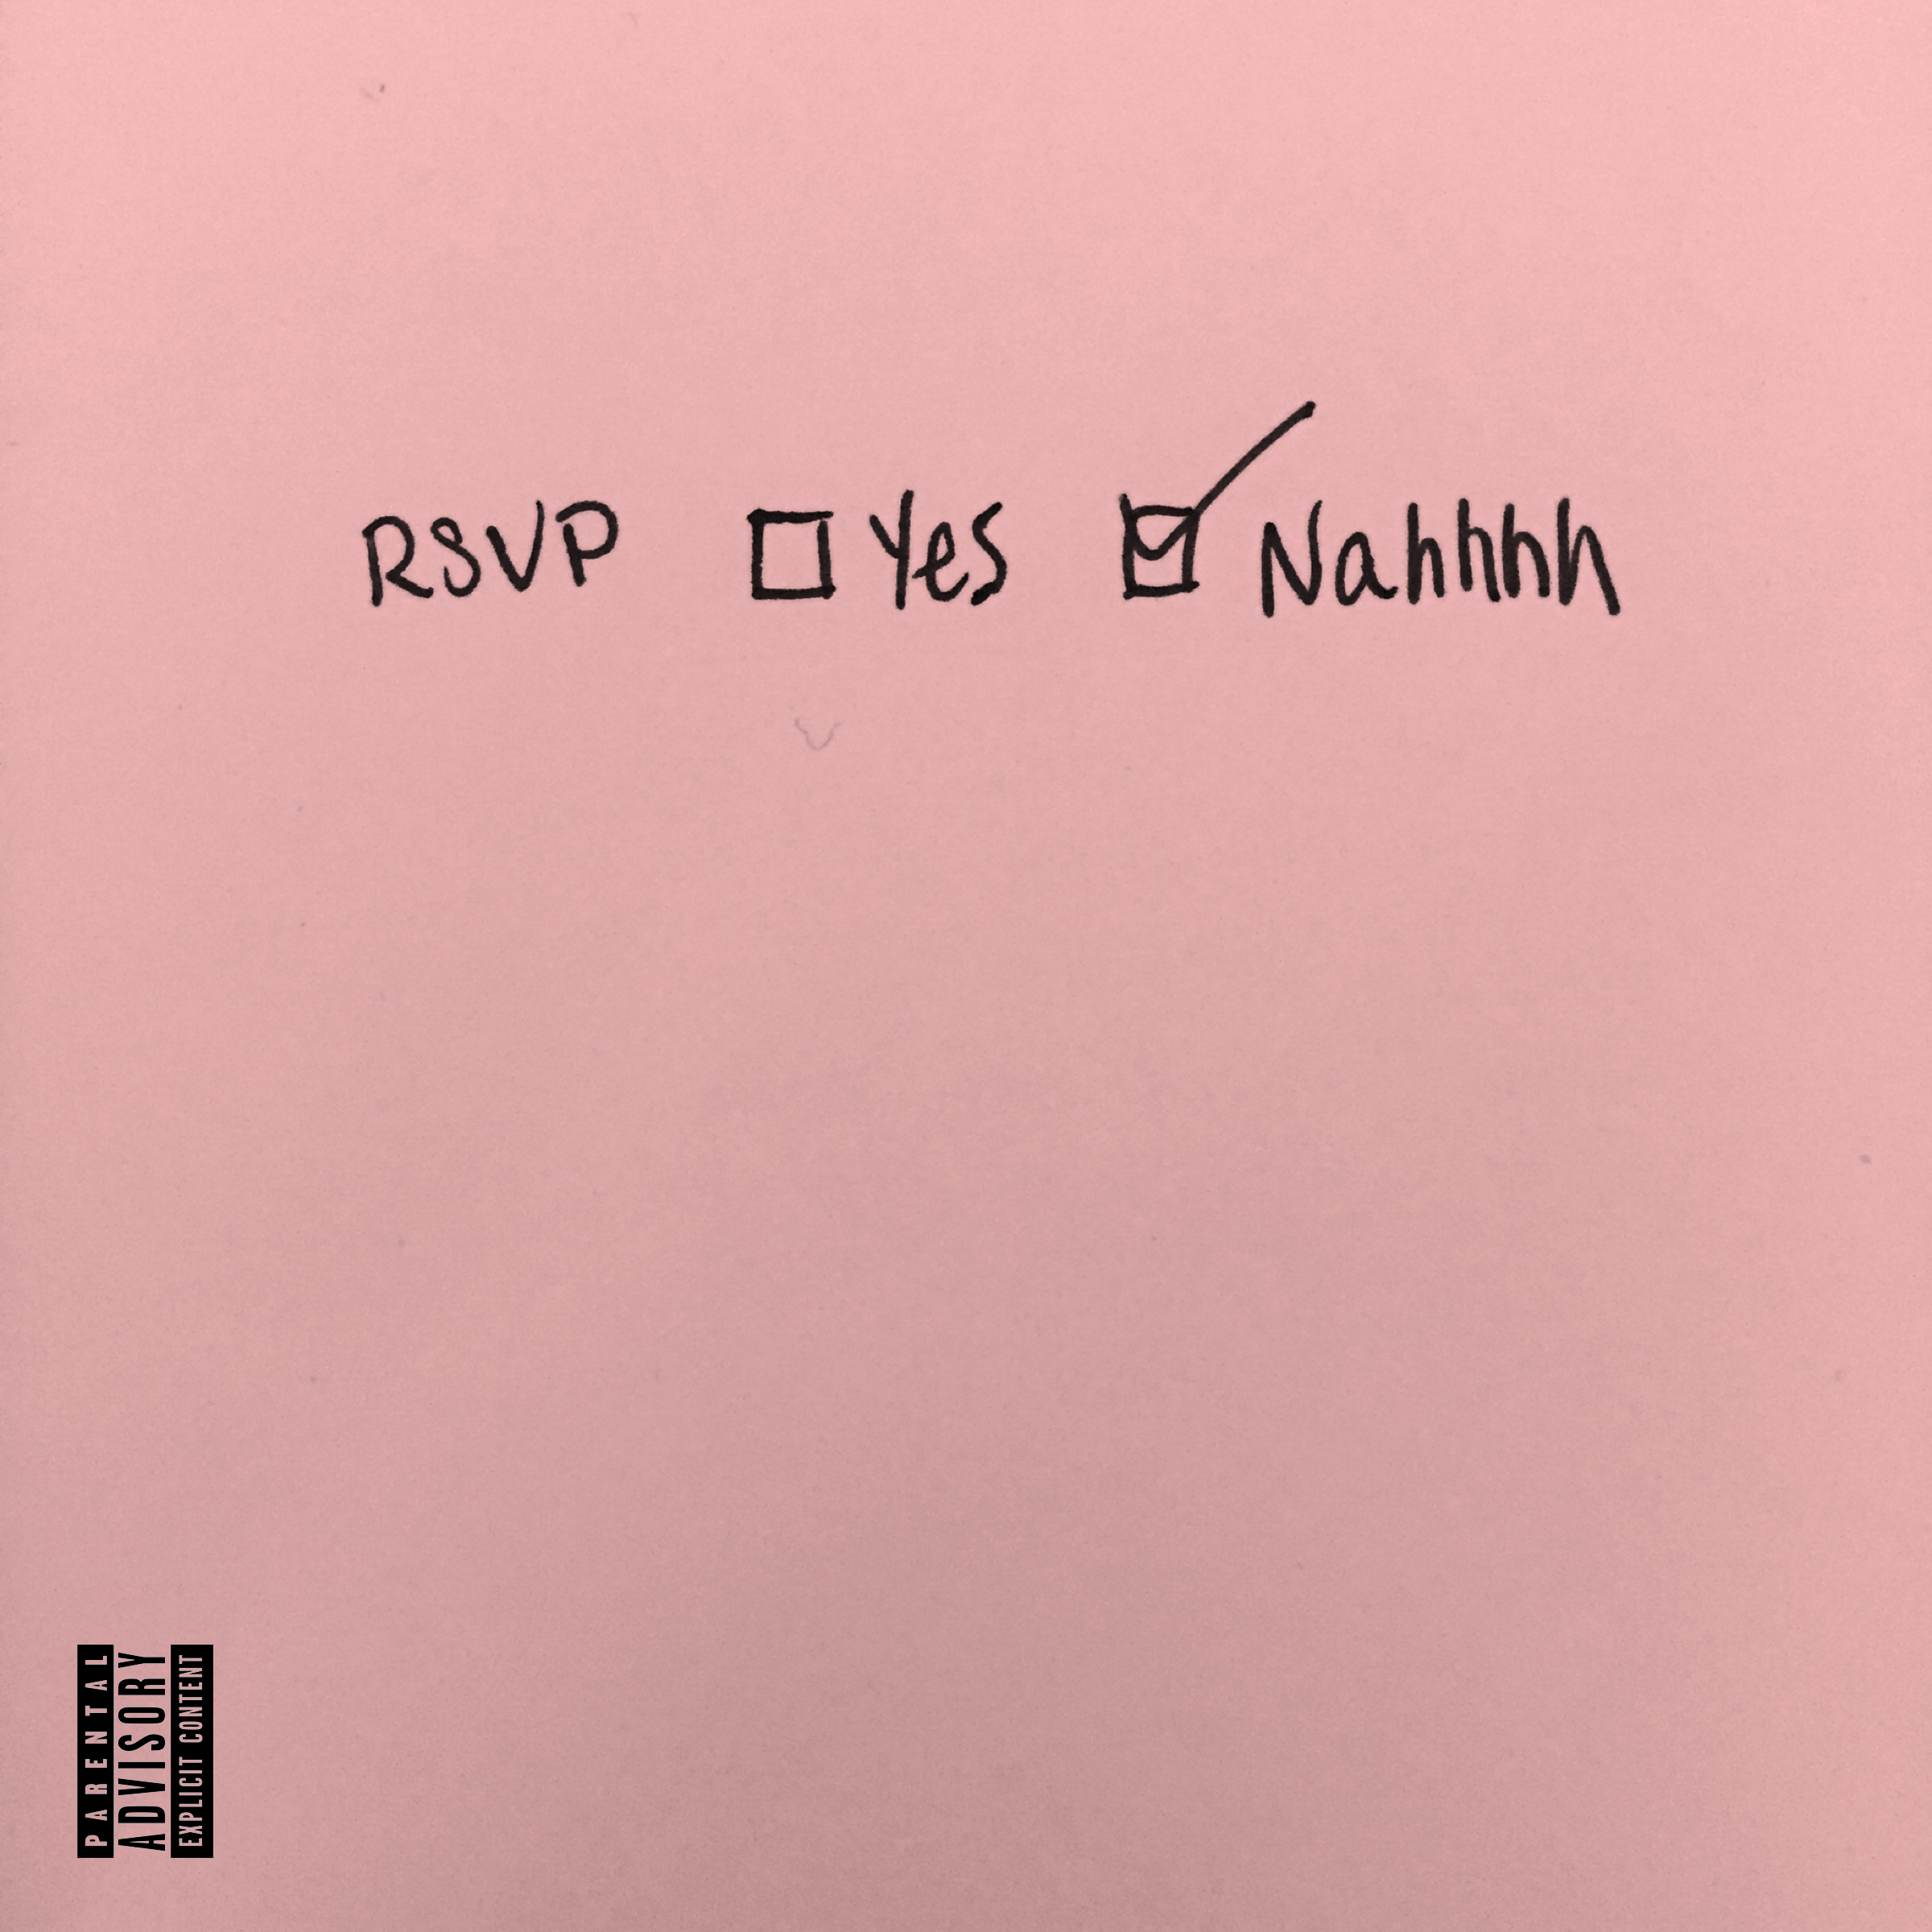 RSVP ☐ Yes ☑ Nahhhh
PARENTAL
ADVISORY
EXPLICIT CONTENT